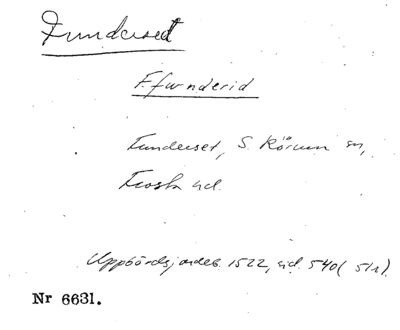 Funderset
Ffwnderid
Funderset, S. Rörum sn,
Frosta hd.
Uppbördsjordeb. 1522, sid. 540 (51r).
Nr 6631.